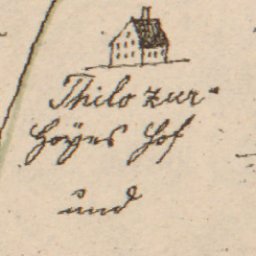 Thilo zur
Hoÿes Hof
und